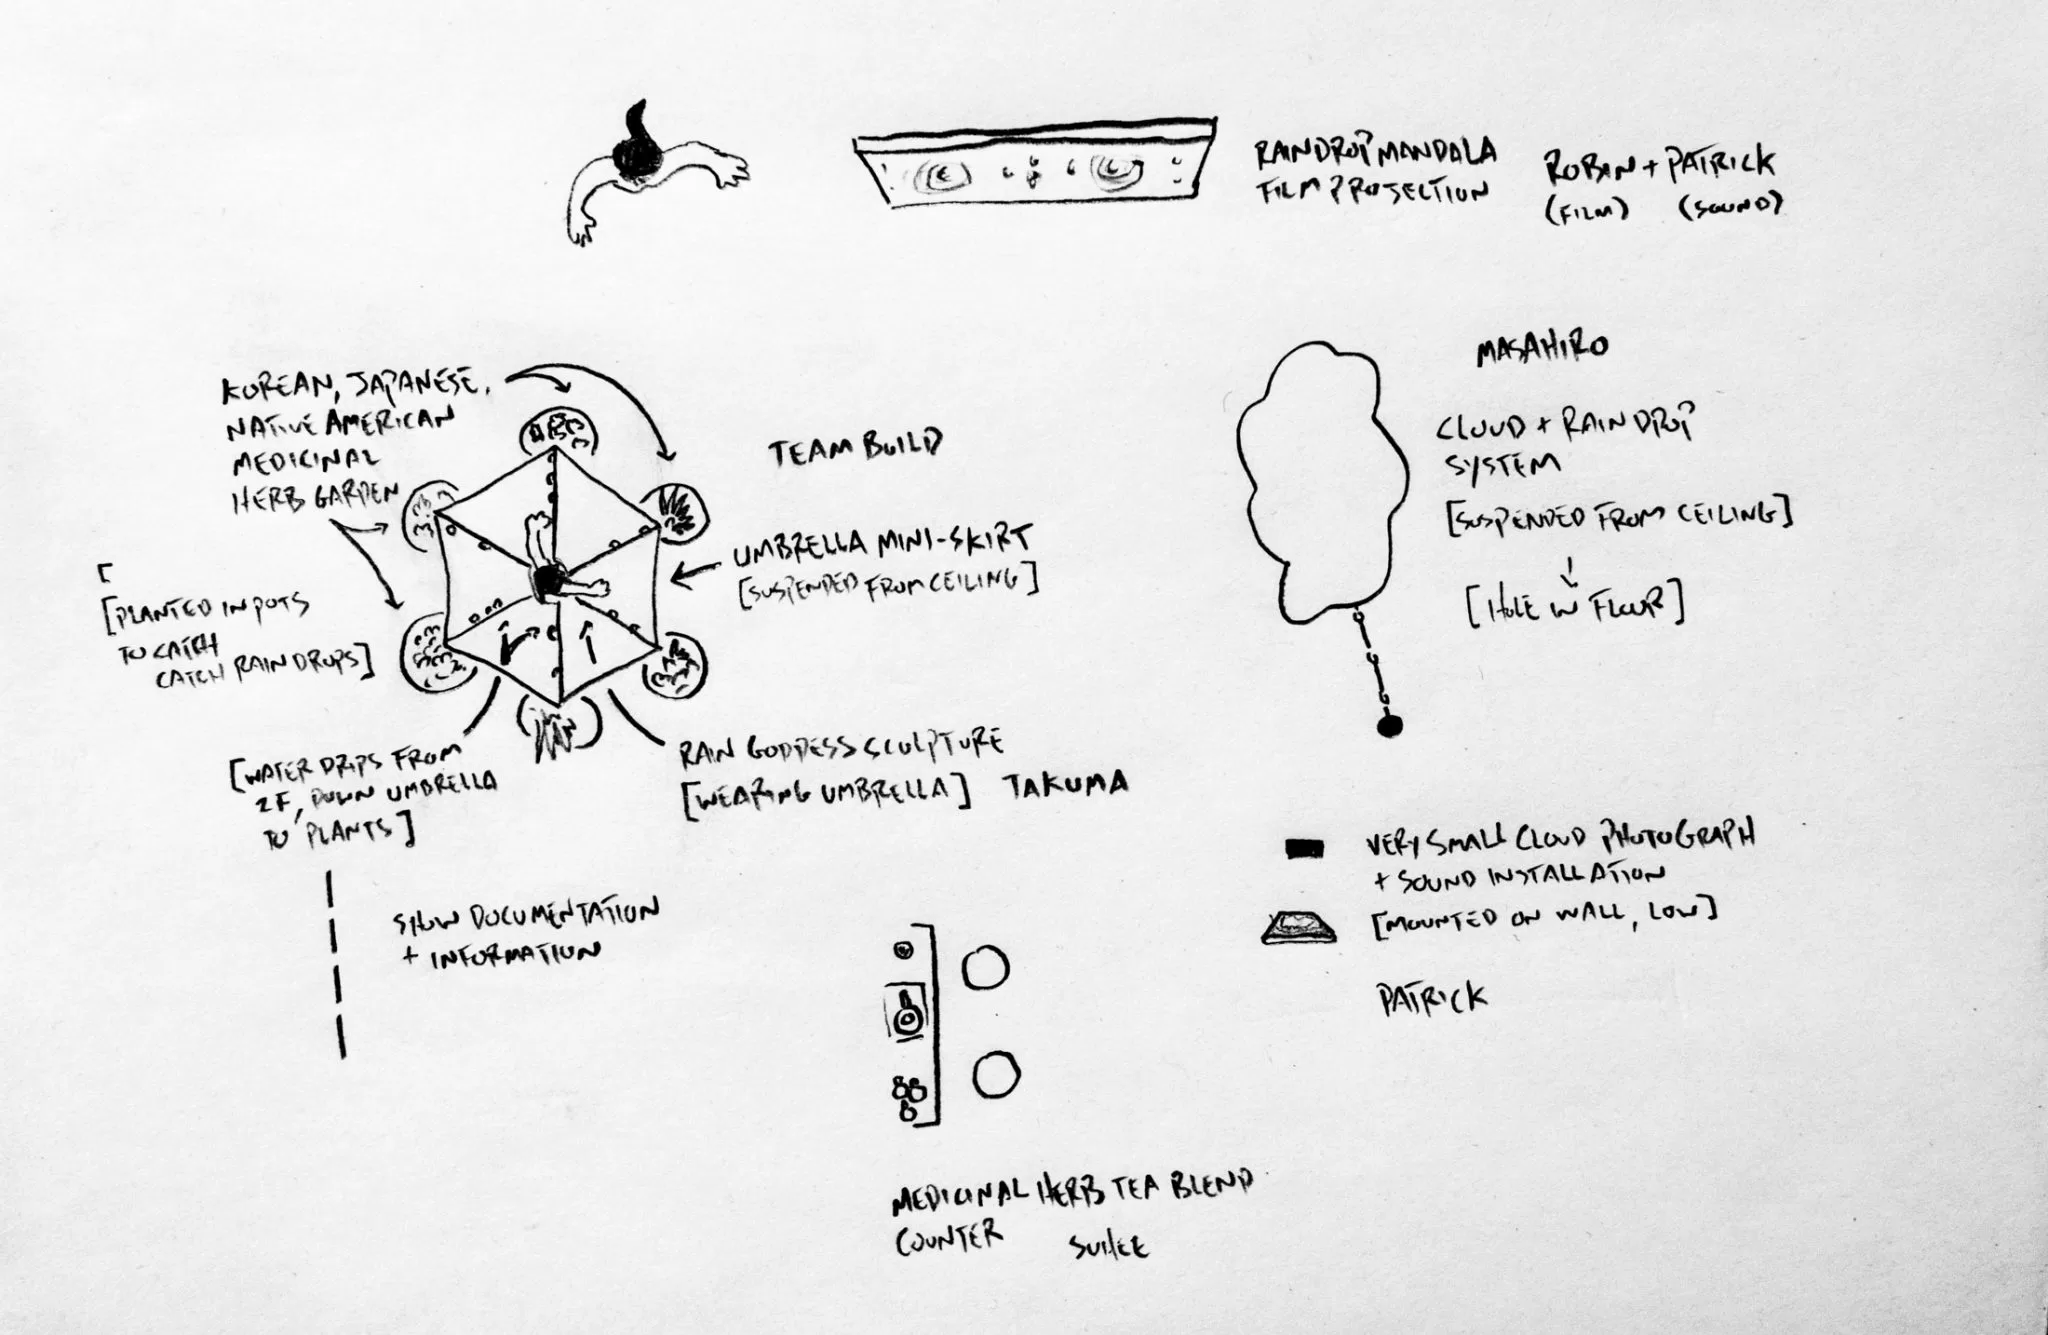 RAINDROP MANDALA
FILM PROJECTION
ROBIN + PATRICK
(FILM) (SOUND)
KOREAN, JAPANESE,
NATIVE AMERICAN
MEDICINAL
HERB GARDEN
[
[PLANTED IN POTS
TO CATCH
CATCH RAINDROPS]
TEAM BUILD
UMBRELLA MINI-SKIRT
[SUSPENDED FROM CEILING]
MASAHIRO
CLOUD + RAINDROP
SYSTEM
[SUSPENDED FROM CEILING]
[HOLE IN FLOOR]
[WATER DRIPS FROM
2F, DOWN UMBRELLA
TO PLANTS]
RAIN GODDESS SCULPTURE
[WEARING UMBRELLA] TAKUMA
SHOW DOCUMENTATION
+ INFORMATION
VERY SMALL CLOUD PHOTOGRAPH
+ SOUND INSTALLATION
[MOUNTED ON WALL, LOW]
PATRICK
MEDICINAL HERB TEA BLEND
COUNTER SUHEE